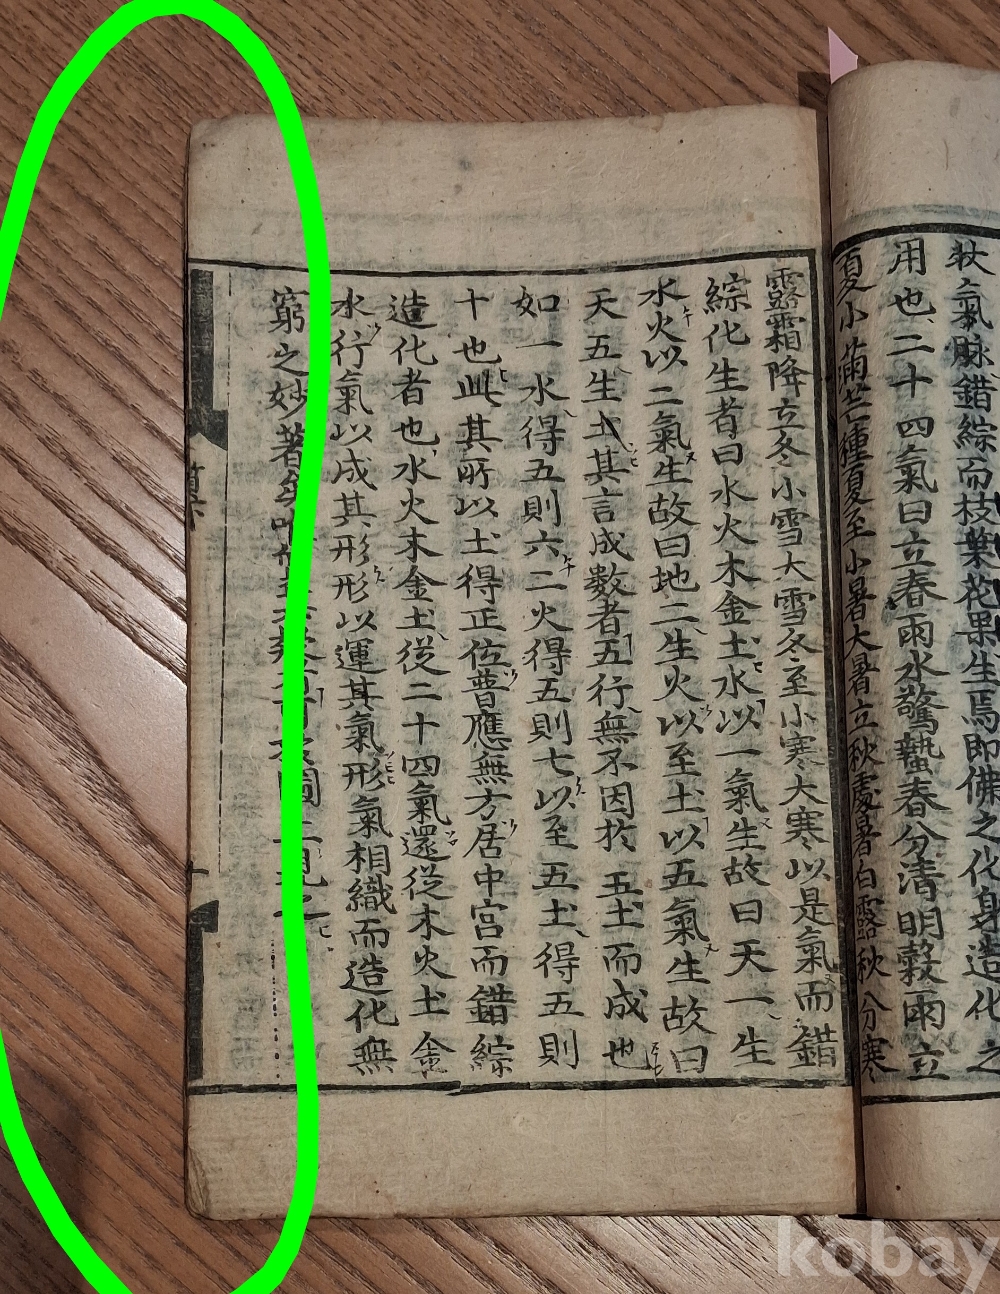 狀氣脉錯綜而枝葉花果生焉即佛之化身造化之
用也二十四氣曰立春雨水驚蟄春分清明穀雨立
夏小滿芒種夏至小暑大暑立秋處暑白露秋分寒
露霜降立冬小雪大雪冬至小寒大寒以是氣而錯
綜化生者曰水火木金土水以一氣生故曰天一生
水火以二氣生故曰地二生火以至土以五氣生故曰
天五生土其言成數者五行無不因於五土而成也
如一水得五則六二火得五則七以至五土得五則
十也此其所以土得正位普應無方居中宮而錯綜
造化者也水火木金土從二十四氣還從木火土金
水行氣以成其形形以運其氣形氣相織而造化無
窮之妙著矣
kobay